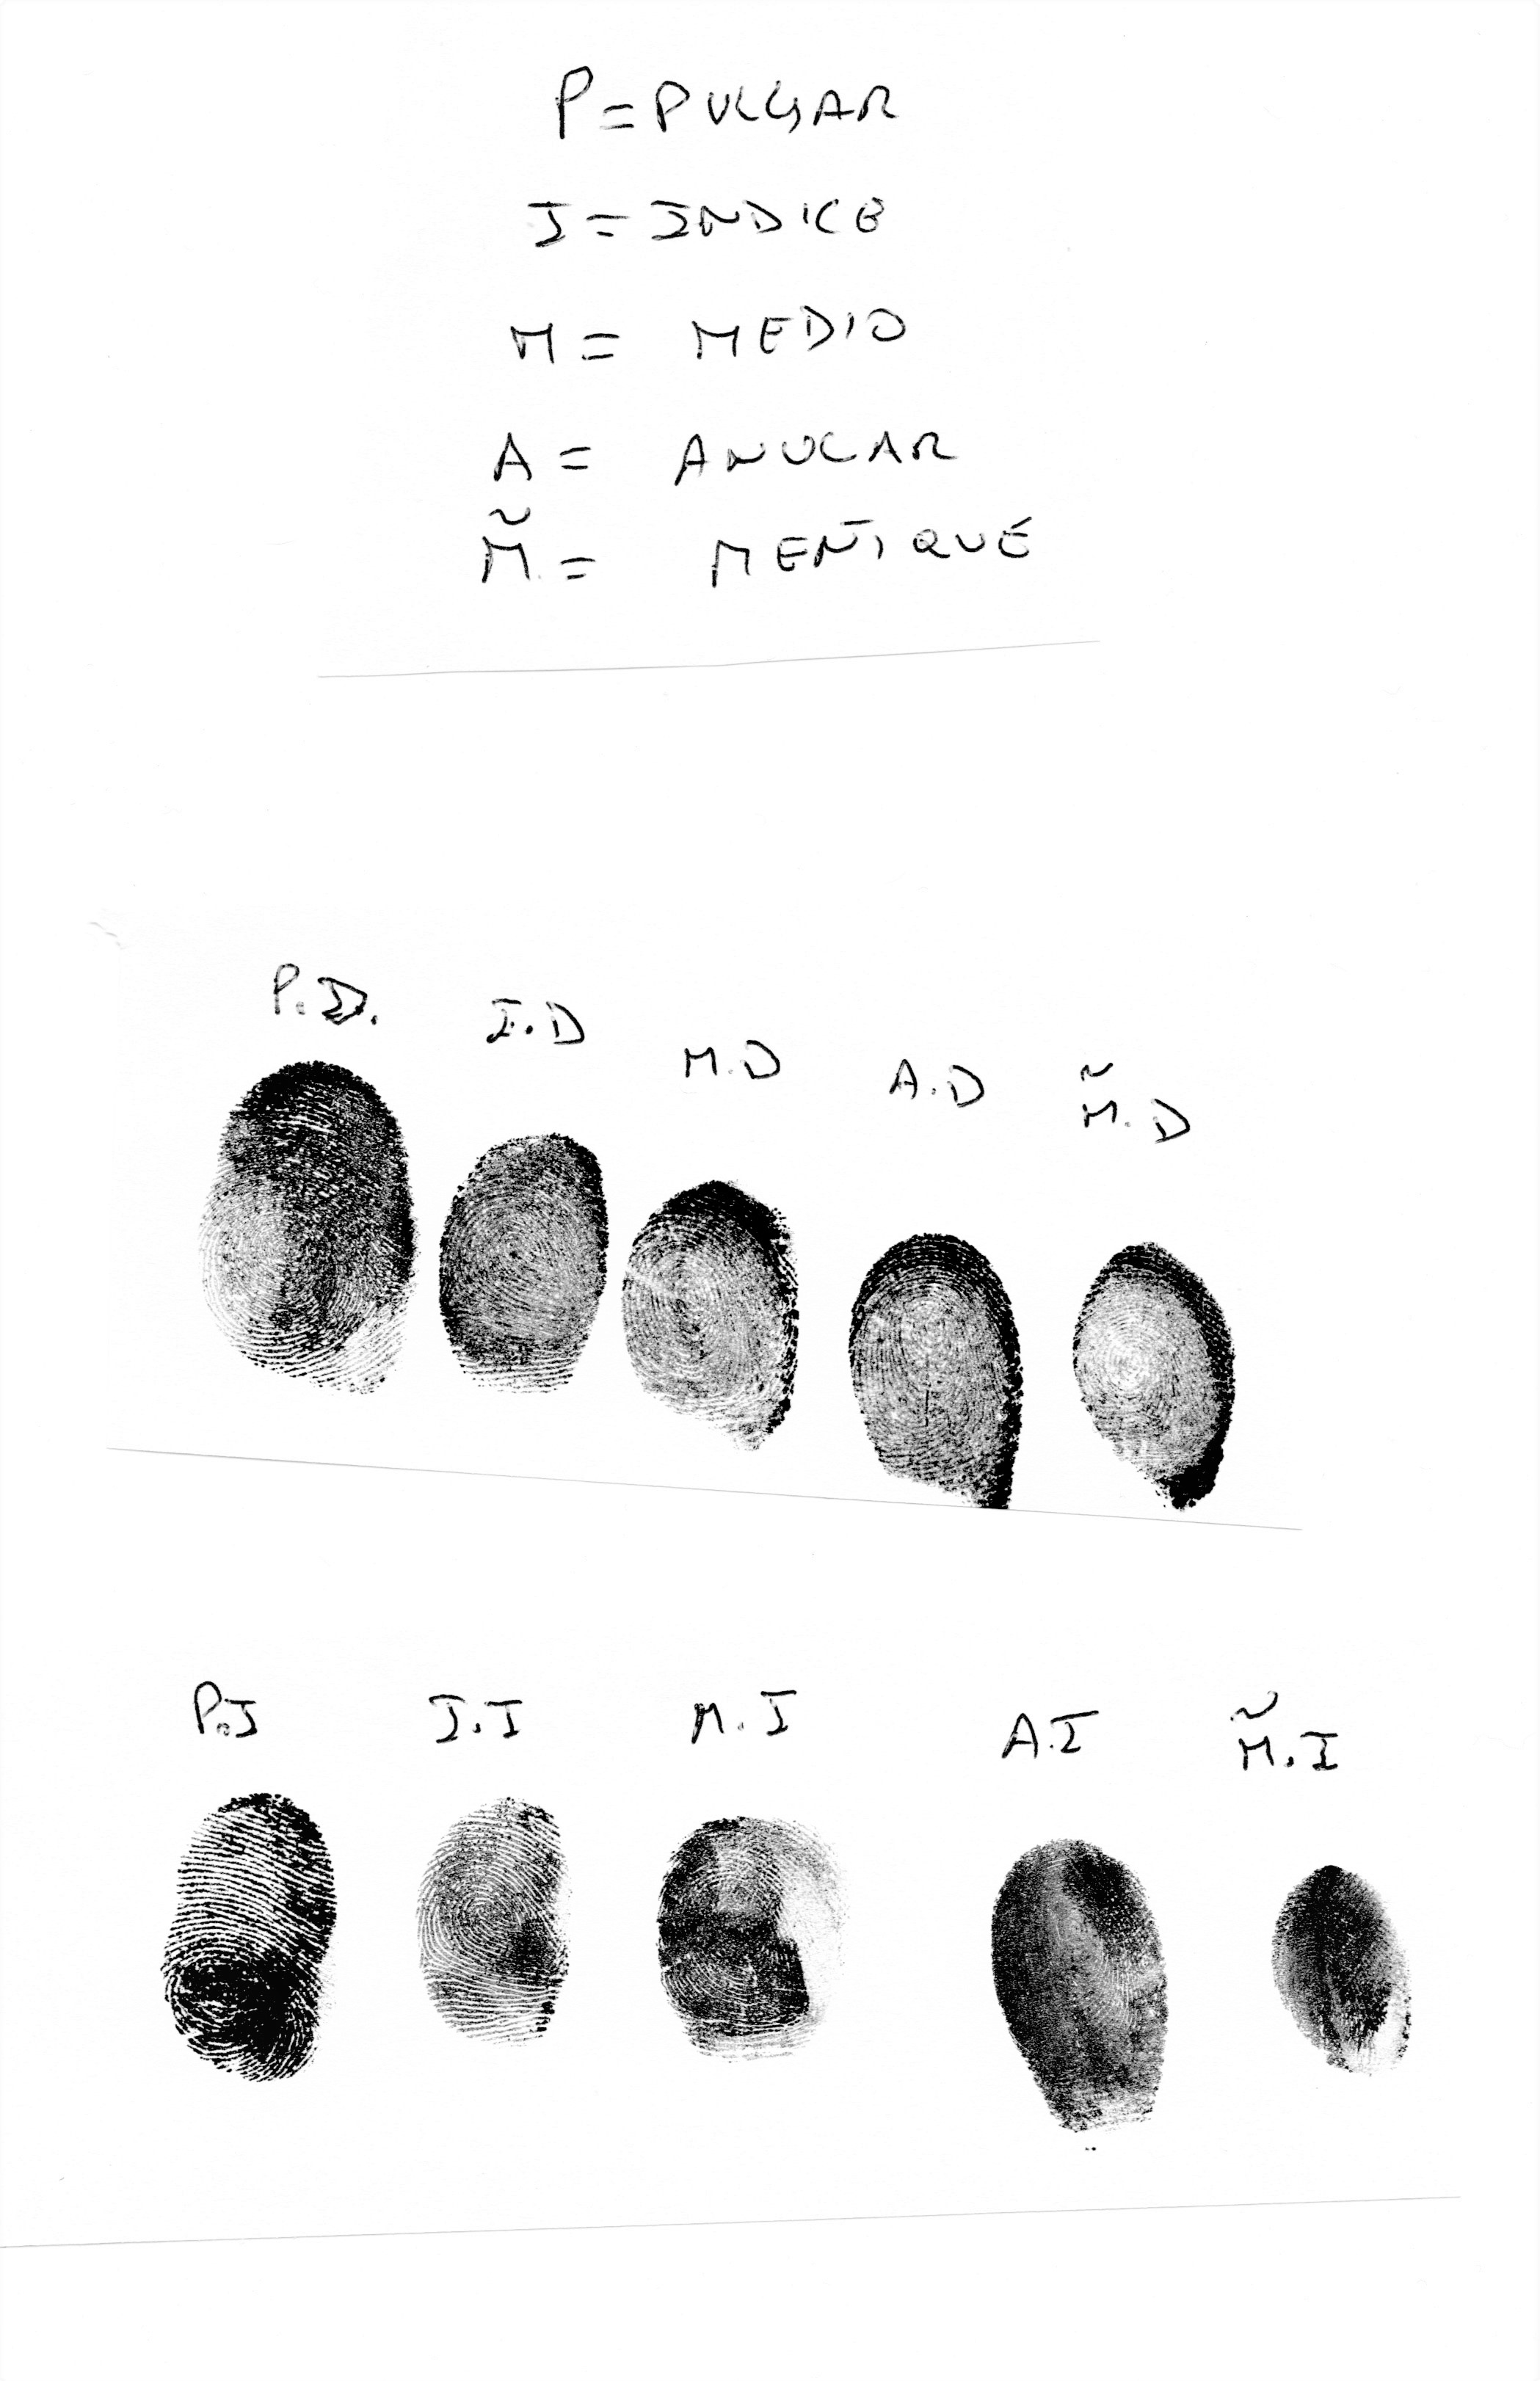 P=PULGAR
I=INDICE
M= MEDIO
A= ANULAR
M̃= MEÑIQUE
P.D. I.D M.D A.D M̃.D
P.I I.I M.I A.I M̃.I